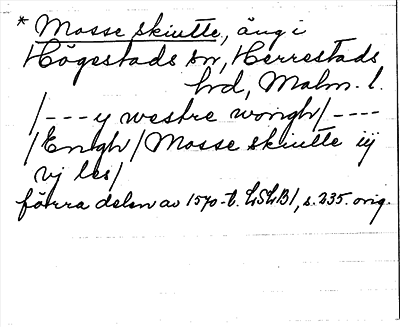 * Mosse skiutte, äng i
Högestads sn, Herrestads
hd, Malm. l.
/--- y westre wongh/----
/Engh/Mosse skiutte iij
vj les/
förra delen av 1570-t. LSLB1, s. 235. orig.